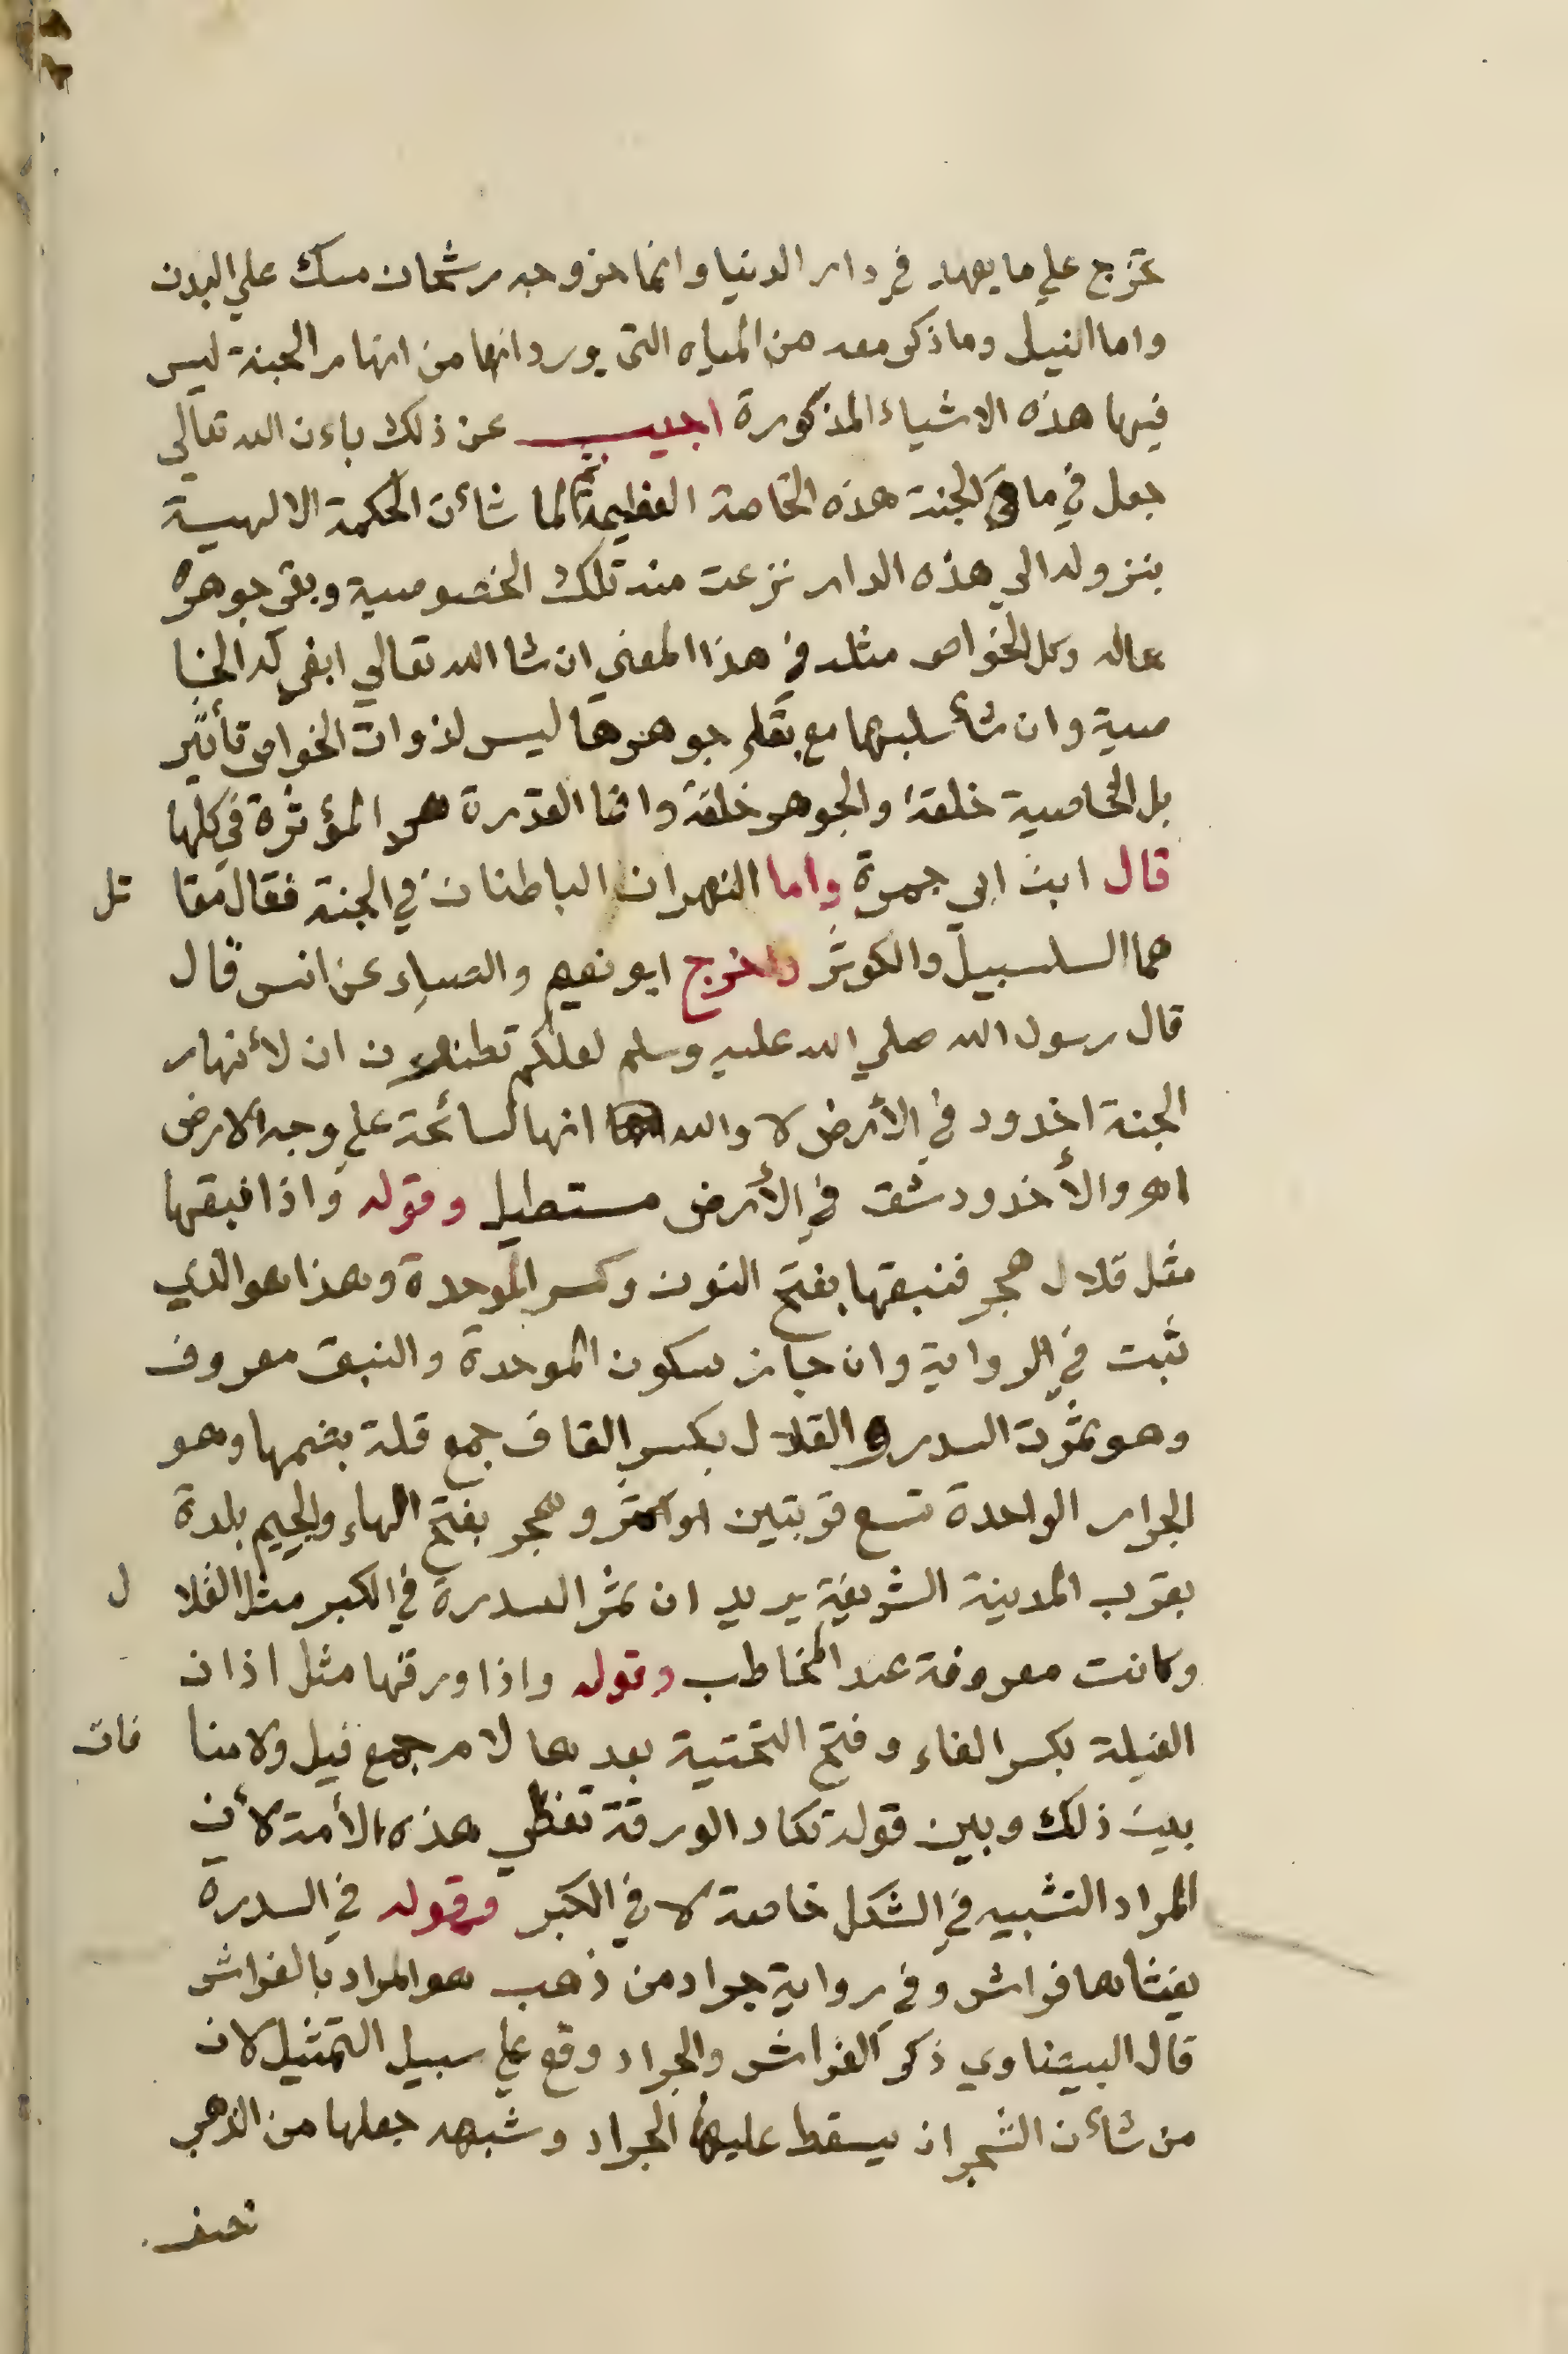 تخرج علي ما يعهد في دار الدنيا وانما خروجه رشحات مسك علي البدن
واما النيل وما ذكر معه من المياه التي يورد انها من انهار الجنة ليس
فيها هذه الاشياء المذكورة اجيب عن ذلك باءن الله تعالي
جعل في ماء الجنة هذه الخاصة العظيمة ثم لما شاءت الحكمة الالهية
بنزوله الي هذه الدار نزعت منه تلك الخصوصية وبقي جوهره
بحاله وكل الخواص مثله في هذا المعني ان شا الله تعالي ابقي له الخا
صية وان شأ سلبها مع بقاء جوهرها ليس لذوات الخواص تأثير
بل الخاصية خلقة والجوهر خلقة وانما القدرة هي المؤثرة في كلها
قال ابن ابي جمرة واما النهران الباطنان في الجنة فقال مقا تل
هما السلسبيل والكوثر واخرج ابو نعيم والضياء عن انس قال
قال رسول الله صلي الله عليه وسلم لعلكم تظنون ان لأنهار
الجنة اخدود في الأرض لا والله انها لسائحة علي وجه الارض
اهـ والأخدود شق في الأرض مستطيل وقوله واذا نبقها
مثل قلال هجر فنبقها بفتح النون وكسر الموحدة وهذا هو الذي
ثبت في الرواية وان جاز سكون الموحدة والنبق معروف
وهو ثمرة السدر والقلال بكسر القاف جمع قلة بضمها وهو
الجرار الواحدة تسع قربتين او اكثر وهجر بفتح الهاء والجيم بلدة
بقرب المدينة الشريفة يريد ان ثمر السدرة في الكبر مثل القلا ل
وكانت معروفة عند المخاطب وقوله واذا ورقها مثل اذان
الفيلة بكسر الفاء وفتح التحتية بعدها لام جمع فيل ولا منا فات
بين ذلك وبين قوله تكاد الورقة تغطي هذه الأمة لأن
المراد التشبيه في الشكل خاصة لا في الكبر وقوله في السدرة
يغشاها فراش وفي رواية جراد من ذهب هو المراد بالفراش
قال البيضاوي ذكر الفراش والجراد وقع علي سبيل التمثيل لان
من شأن الشجر ان يسقط عليها الجراد وشبهه جعلها من الذهب